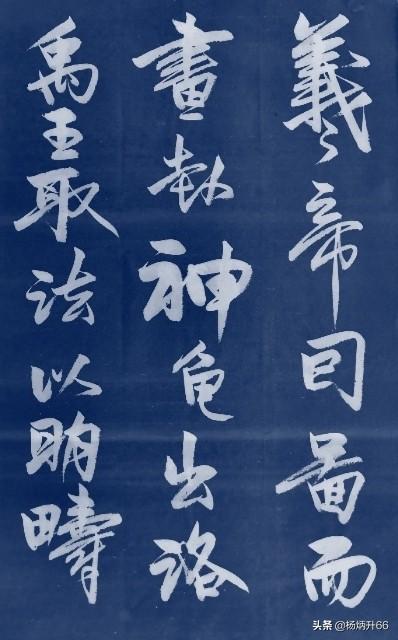 羲帝囙啚而
畫卦神龟出洛
禹王取法以眀疇
头条 @杨炳升66